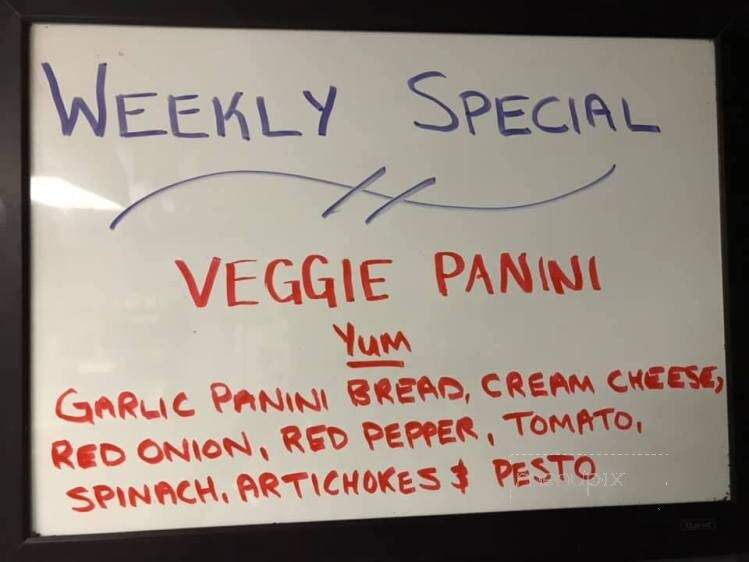 WEEKLY SPECIAL
VEGGIE PANINI
YUM
GARLIC PANINI BREAD, CREAM CHEESE,
RED ONION, RED PEPPER, TOMATO,
SPINACH, ARTICHOKES & PESTO
menupix